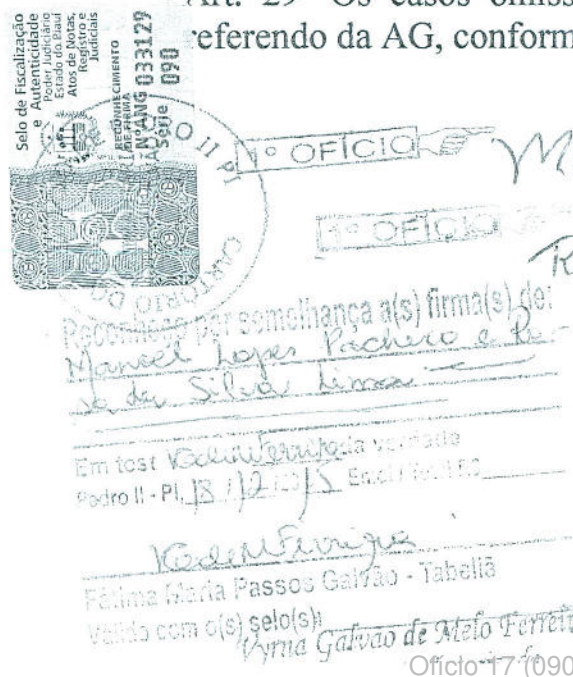 Art. 29 Os casos omiss
referendo da AG, conform
Selo de Fiscalização
e Autenticidade
Poder Judiciário
Estado do Piauí
Atos de Notas,
Registro e
Judiciais
RECONHECIMENTO
DE FIRMA
NºANG 033129
Série 090
CARTÓRIO DO
1º OFÍCIO
1º OFÍCIO
Reconheço por semelhança a(s) firma(s) de:
Manoel Lopes Pacheco e
da Silva Lima
Em test da verdade
Pedro II - PI, 18/12/
Fátima Maria Passos Galvão - Tabeliã
Válido com o(s) selo(s)
Vyrna Galvão de Melo Ferreir
Ofício 17 (090